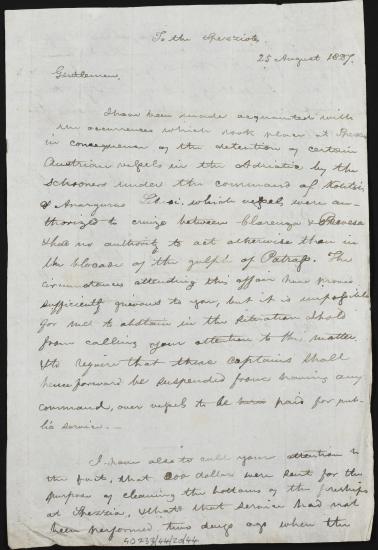 To the Spezziots
25 August 1827.
Gentlemen
I have been made acquainted with
the occurrences which took place at Spezzia
in consequence of the detention of certain
Austrian vessels in the Adriatic by the
schooners under the command of
& which vessels were au-
thorized to cruize between Clarenza & Prevesa
& had no authority to act otherwise than in
the blocade of the gulph of Patrass. The
circumstances attending this affair have proved
sufficiently grievous to you, but it is impossible
for me to abstain in the situation I hold
from calling your attention to the matter
& to require that these captains shall
henceforward be suspended from having any
command, over vessels to be paid for pub-
lic service.—
I have also to call your attention to
the fact, that 200 dollars were sent for the
purpose of cleaning the bottoms of the fireships
at Spezzia, & that that service had not
been performed three days ago when the
GD233/44/20/44